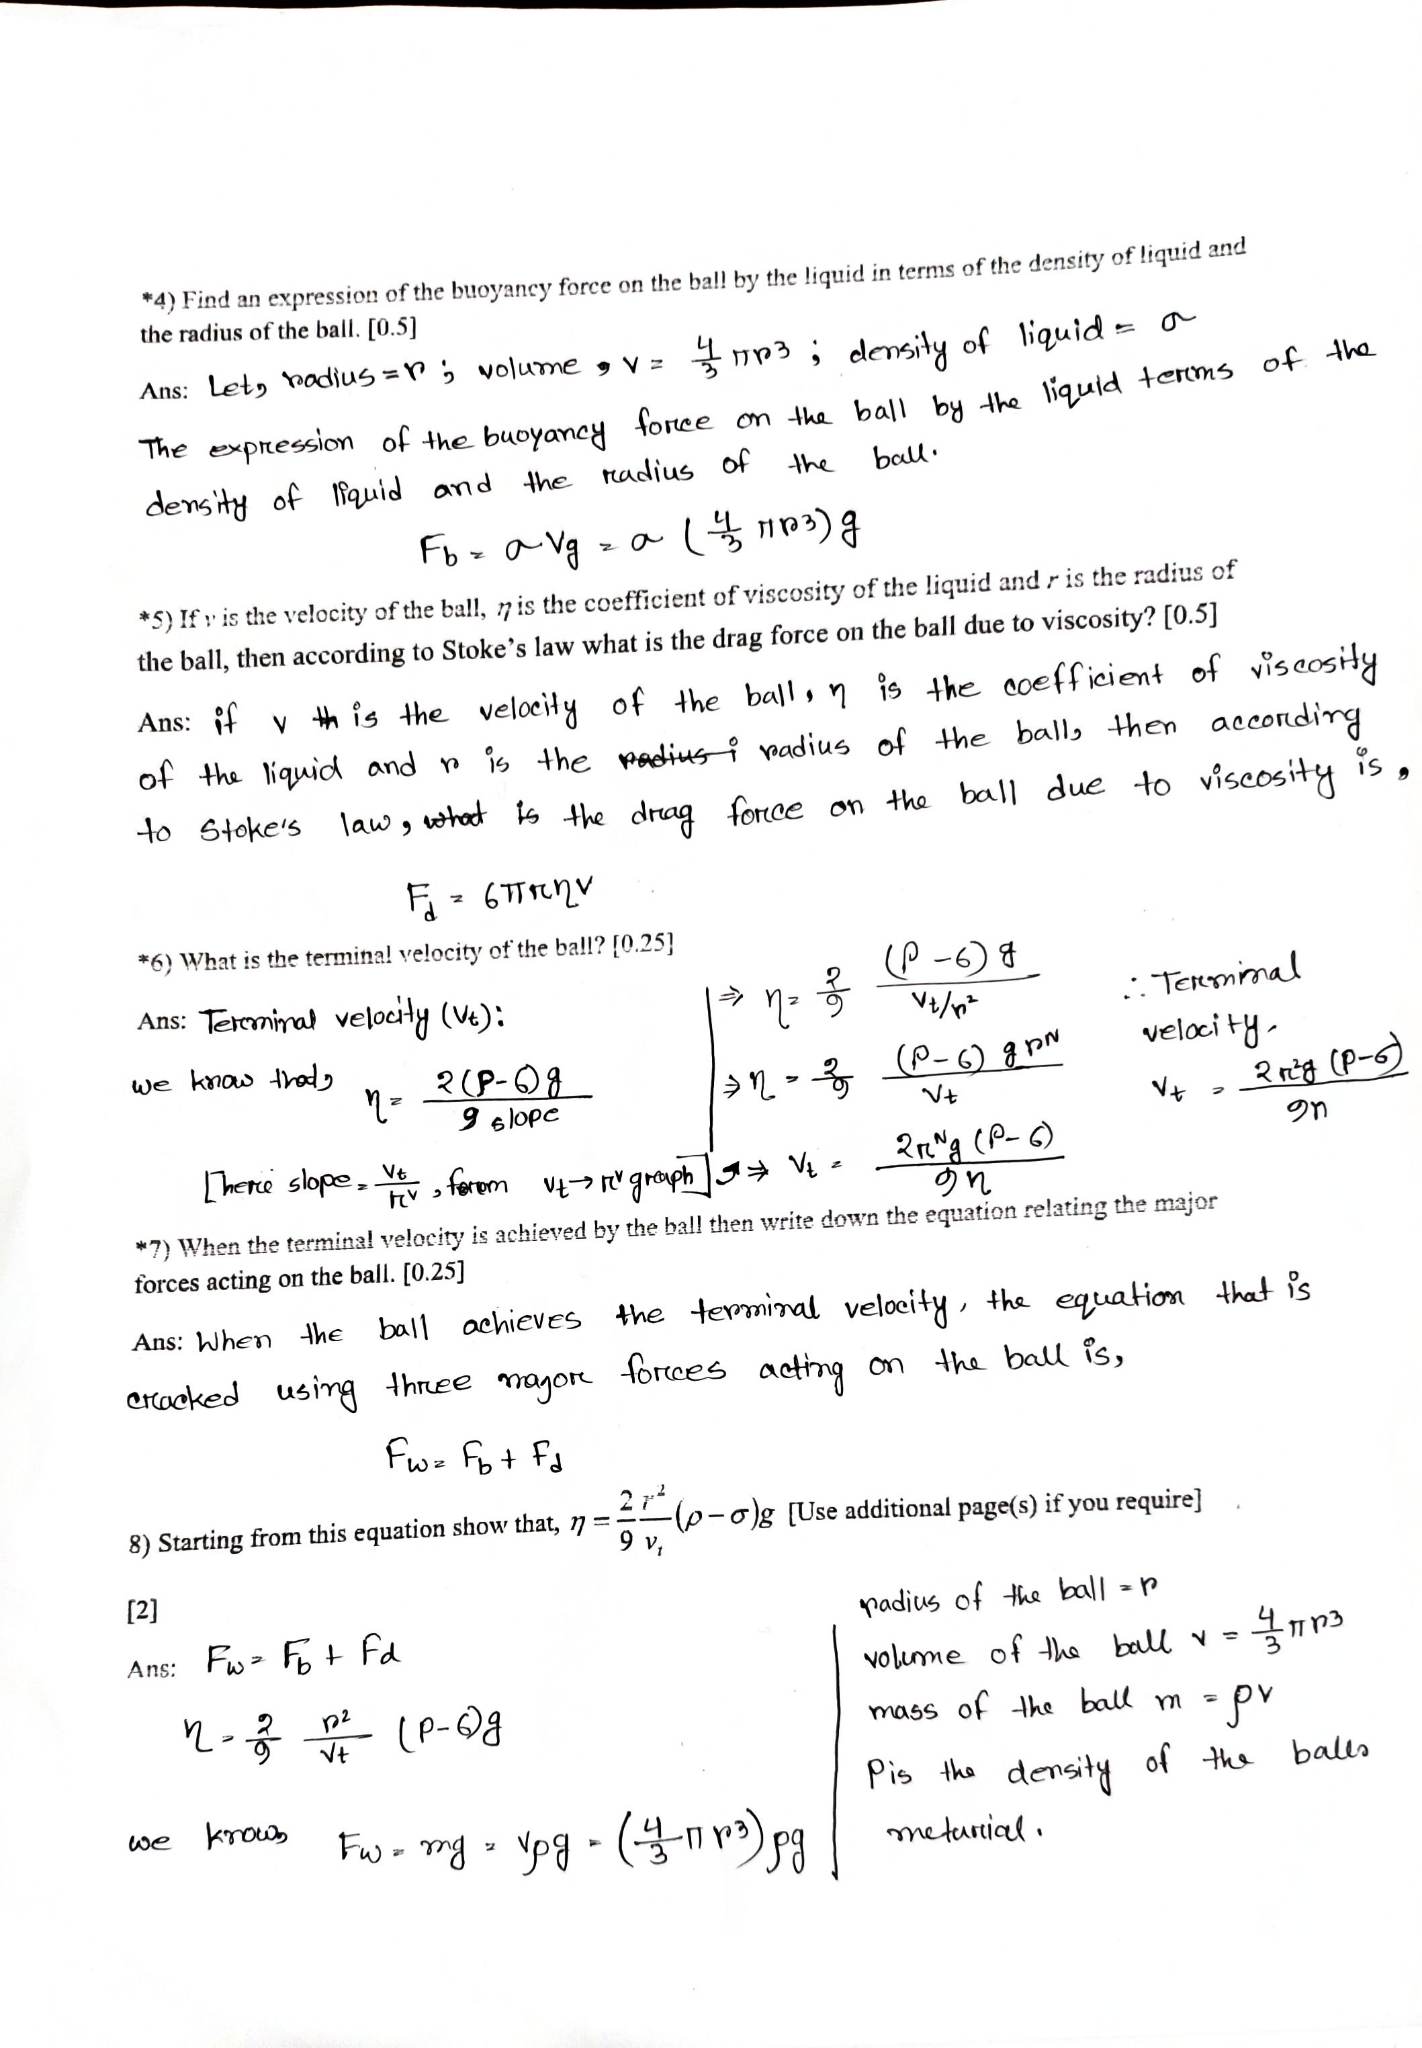 *4) Find an expression of the buoyancy force on the ball by the liquid in terms of the density of liquid and
the radius of the ball. [0.5]
Ans: Let, radius = r ; volume, v = 4/3 πr3 ; density of liquid = σ
The expression of the buoyancy force on the ball by the liquid terms of the
density of liquid and the radius of the ball.
Fb = σVg = σ (4/3 πr3) g
*5) If v is the velocity of the ball, η is the coefficient of viscosity of the liquid and r is the radius of
the ball, then according to Stoke's law what is the drag force on the ball due to viscosity? [0.5]
Ans: if v th is the velocity of the ball, η is the coefficient of viscosity
of the liquid and r is the radius i radius of the ball, then according
to Stoke's law, what is the drag force on the ball due to viscosity is,
Fd = 6πrηv
*6) What is the terminal velocity of the ball? [0.25]
Ans: Terminal velocity (Vt):
we know that, η = 2(ρ-σ)g / 9 slope
[here slope = Vt/r², from Vt → r² graph]
⇒ η = 2/9 (ρ-σ)g / Vt/r²
⇒ η = 2/9 (ρ-σ) g r² / Vt
⇒ Vt = 2r²g (ρ-σ) / 9η
∴ Terminal
velocity.
Vt = 2r²g (ρ-σ) / 9η
*7) When the terminal velocity is achieved by the ball then write down the equation relating the major
forces acting on the ball. [0.25]
Ans: When the ball achieves the terminal velocity, the equation that is
cracked using three magor forces acting on the ball is,
Fw = Fb + Fd
8) Starting from this equation show that, η = 2/9 r²/vt (ρ-σ)g [Use additional page(s) if you require]
[2]
Ans: Fw = Fb + Fd
η = 2/9 r²/Vt (ρ-σ)g
we know, Fw = mg = Vρg = (4/3 πr3) ρg
radius of the ball = r
volume of the ball v = 4/3 πr3
mass of the ball m = ρv
ρ is the density of the balls
meturial.